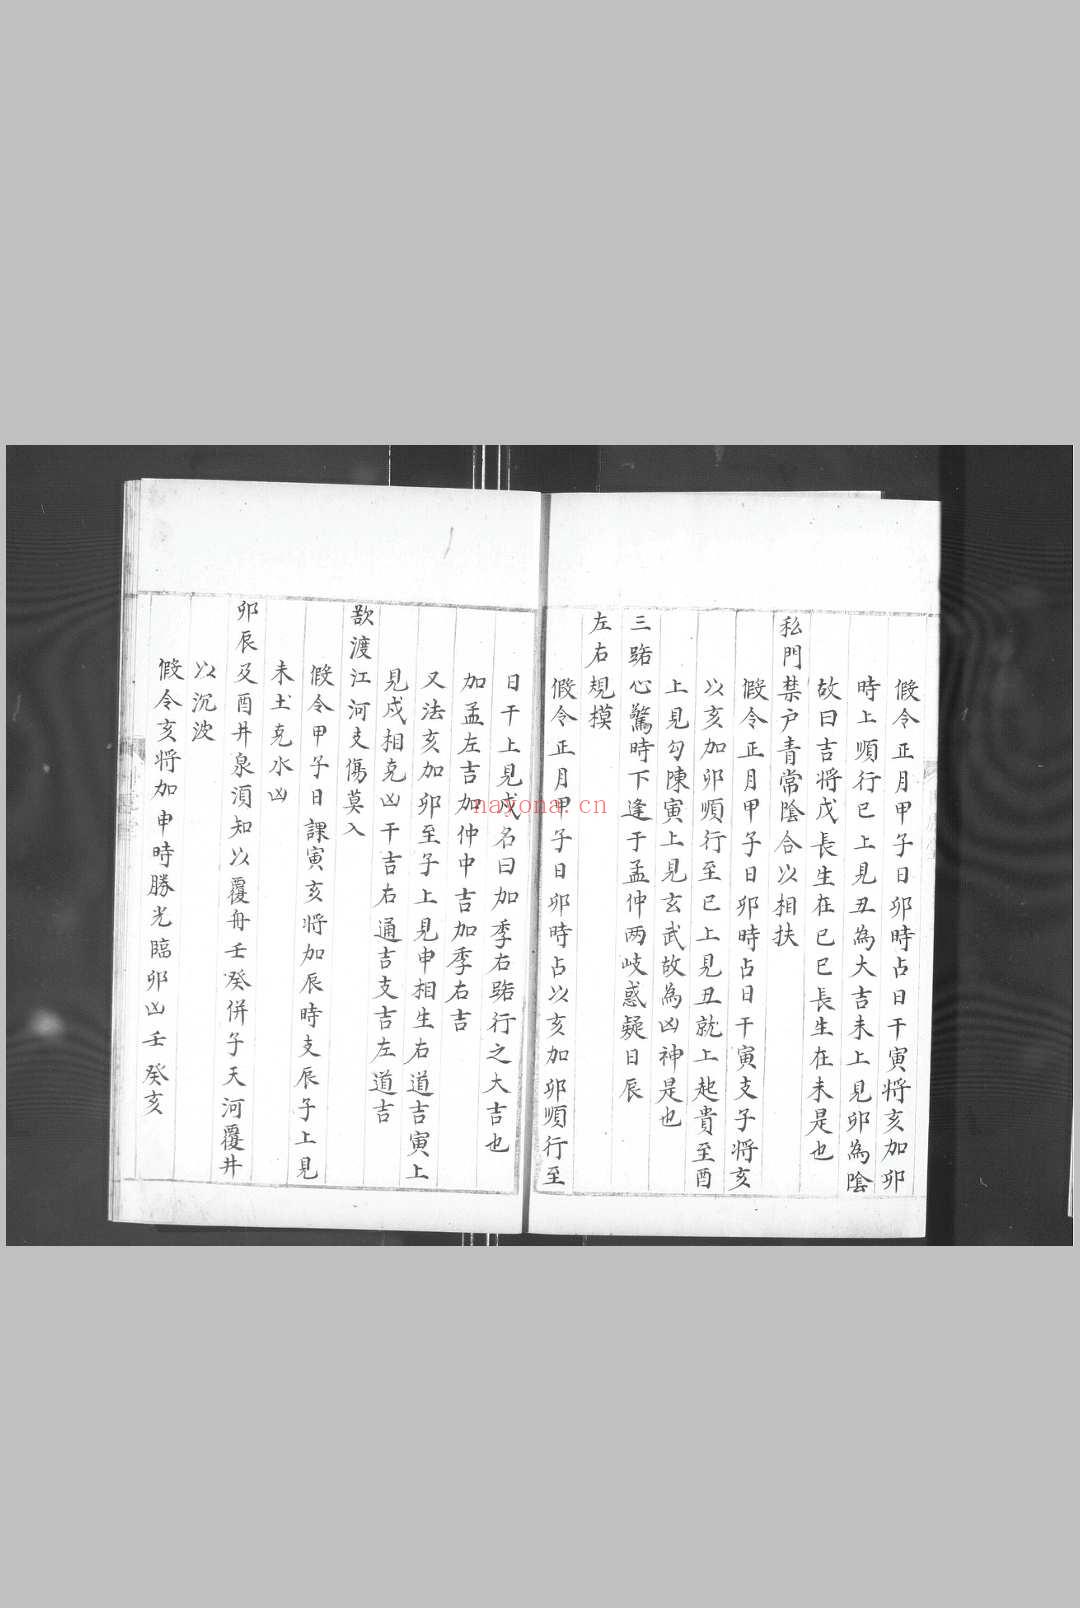 假令正月甲子日卯時占日干寅將亥加卯
時上順行巳上見丑為大吉未上見卯為陰
故曰吉將戊長生在巳巳長生在未是也
私門禁户青常陰合以相扶
假令正月甲子日卯時占日干寅支子將亥
以亥加卯順行至巳上見丑就上起貴至酉
上見勾陳寅上見玄武故為凶神是也
三路心驚時下逢于孟仲兩岐惑疑日辰
左右規模
假令正月甲子日卯時占以亥加卯順行至
日干上見戍名曰加季右路行之大吉也
加孟左吉加仲中吉加季右吉
又法亥加卯至子上見申相生右道吉寅上
見戍相克凶干吉右通吉支吉左道吉
歆渡江河支傷莫入
假令甲子日課寅亥將加辰時支辰子上見
未土克水凶
卯辰及酉井泉須知以覆舟壬癸併子天河覆井
以沉波
假令亥將加申時勝光臨卯凶壬癸亥
nayona.cn